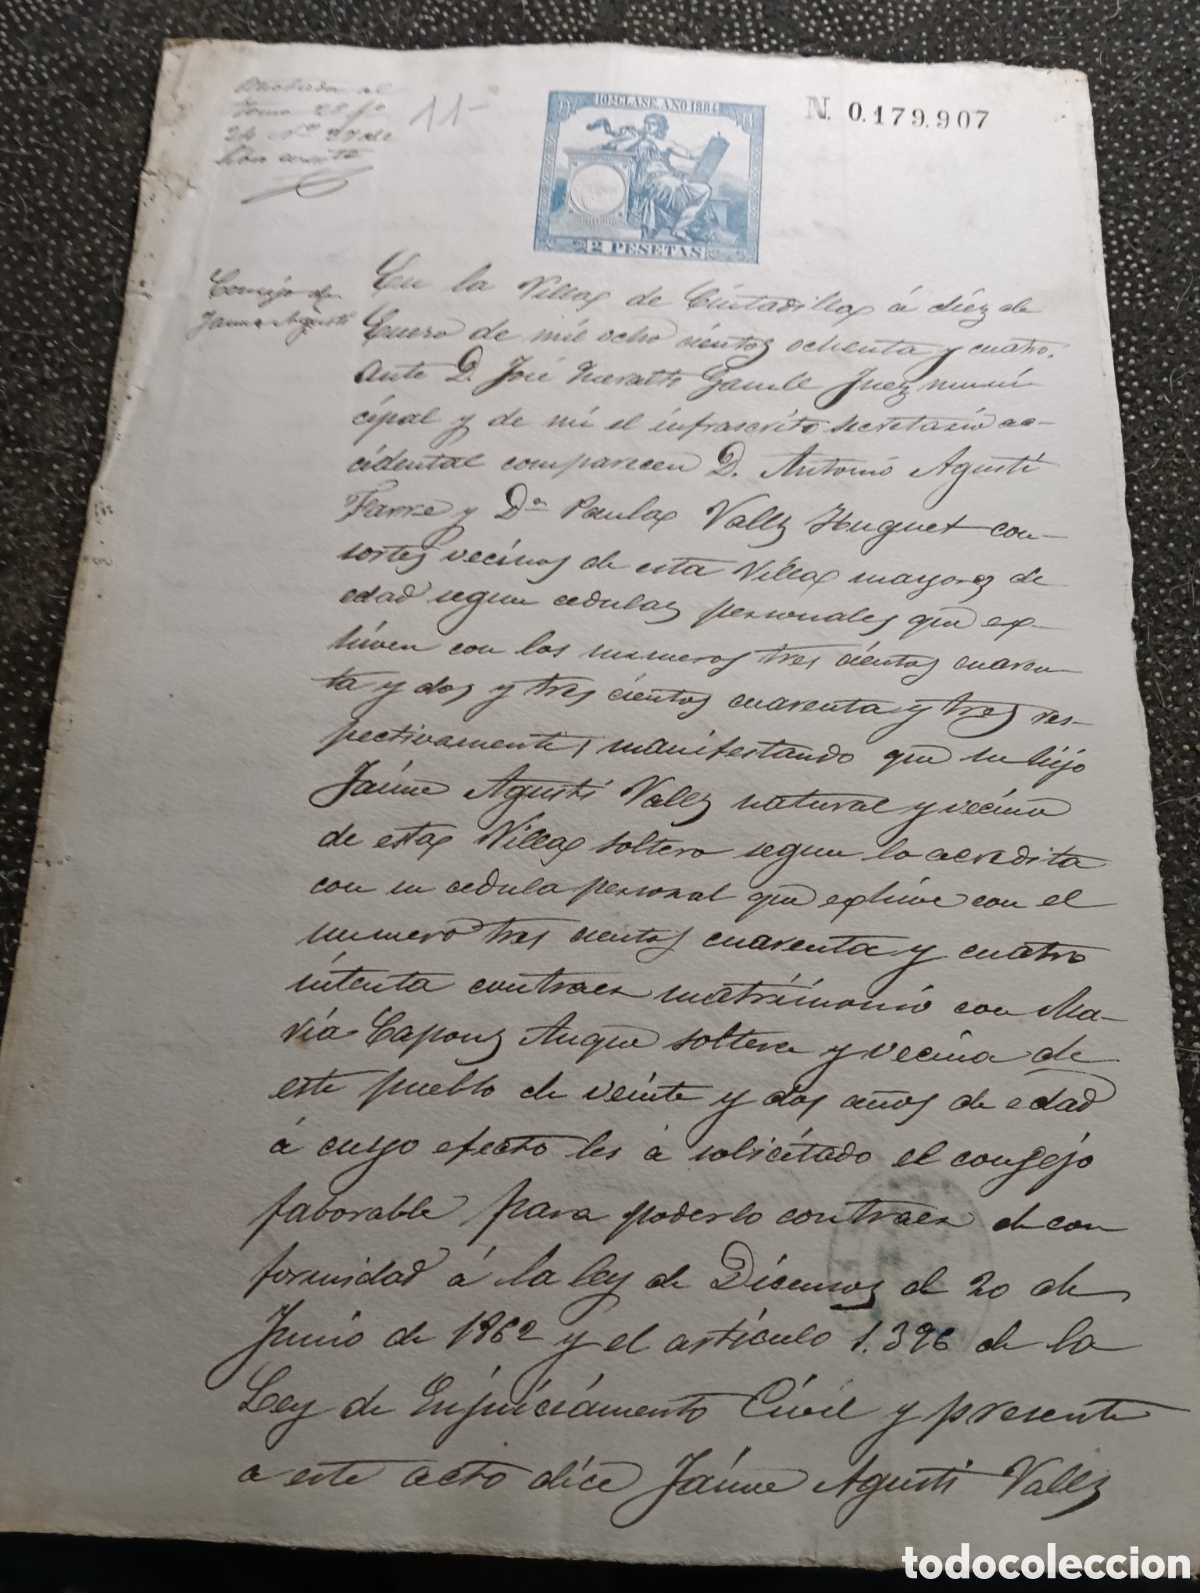 10ª CLASE AÑO 1884
N. 0.179.907
2 PESETAS
11-
Consejo de
Jaime Agustí
En la Villa de Ciutadilla á diez de
Enero de mil ocho cientos ochenta y cuatro.
ante D. José Juez muni
cipal y de mi el infrascrito secretario ac-
cidental comparecen D. Antonio Agustí
Farre y Dª Paula Valls Huguet con-
sortes vecinos de esta Villa mayores de
edad segun cedulas personales que ex-
hiven con los numeros tres cientos cuaren
ta y dos y tres cientos cuarenta y tres res-
pectivamente, manifestando que su hijo
Jaime Agustí Valls natural y vecino
de esta Villa soltero segun lo acredita
con su cedula personal que exhive con el
numero tres cientos cuarenta y cuatro
intenta contraer matrimonio con Ma-
ria Capons Auque soltera y vecina de
este pueblo de veinte y dos años de edad
á cuyo efecto les á solicitado el consejo
faborable para poderlo contraer de con
formidad á la ley de Dicensos de 20 de
Junio de 1862 y el articulo 1.396 de la
Ley de Enjuiciamento Civil y presente
a este acto dice Jaime Agusti Valls
todocoleccion